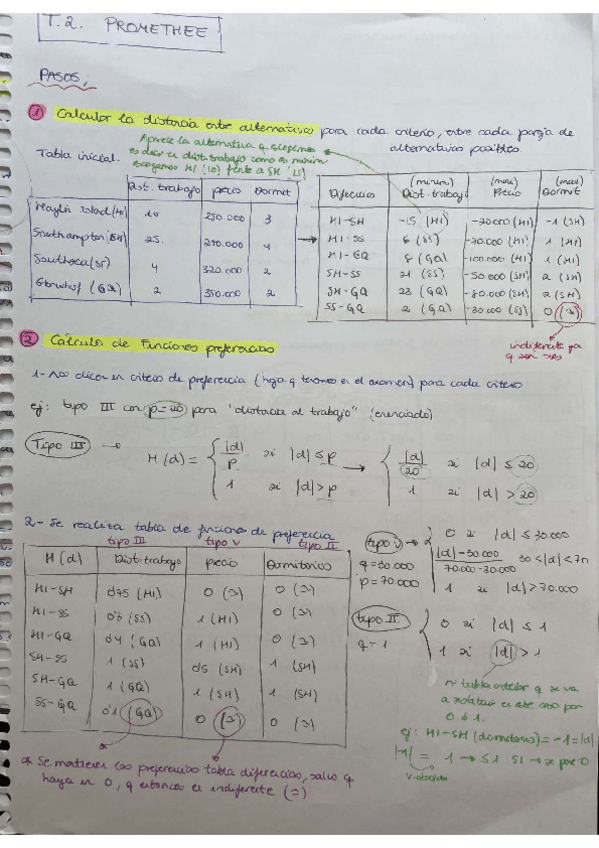 T.2. PROMETHEE
PASOS:
① Calcular la distancia entre alternativas para cada criterio, entre cada pareja de alternativas posibles.
Aparece la alternativa q escogemos
es decir en dist. trabajo como es minim
escogemos HI (10) frente a SH (25)
Tabla inicial.
Dist. trabajo precio Dormit
Haylin Island (HI) 10 250.000 3
Southampton (SH) 25 270.000 4
Southsea (SS) 4 320.000 2
(GQ) 2 350.000 2
(minim) (min) (max)
Diferencias Dist. trabajo Precio Dormit
HI-SH -15 (HI) -20000 (HI) -1 (SH)
HI-SS 6 (SS) -70.000 (HI) 1 (HI)
HI-GQ 8 (GQ) -100.000 (HI) 1 (HI)
SH-SS 21 (SS) -50.000 (SH) 2 (SH)
SH-GQ 23 (GQ) -80.000 (SH) 2 (SH)
SS-GQ 2 (GQ) -30.000 (SS) 0 (≃)
indiferente ya
② Cálculo de Funciones preferencias
1- Nos dicen un criterio de preferencia (hoja q tenemos en el examen) para cada criterio
ej: tipo III con p=20 para "distancia al trabajo" (enunciado)
Tipo III → H(d) = { |d|/p si |d| ≤ p → { |d|/20 si |d| ≤ 20
1 si |d| > p 1 si |d| > 20
2- Se realiza tabla de funciones de preferencia
tipo III tipo V tipo II
H(d) Dist. trabajo precio Dormitorios
HI-SH 0'75 (HI) 0 (≃) 0 (≃)
HI-SS 0'3 (SS) 1 (HI) 0 (≃)
HI-GQ 0'4 (GQ) 1 (HI) 0 (≃)
SH-SS 1 (SS) 0'5 (SH) 1 (SH)
SH-GQ 1 (GQ) 1 (SH) 1 (SH)
SS-GQ 0'1 (GQ) 0 (≃) 0 (≃)
tipo V → { 0 si |d| ≤ 30.000
q=30.000 |d|-30.000/70.000-30.000 30<|d|<70
p=70.000 1 si |d| > 70.000
tipo II { 0 si |d| ≤ 1
q=1 1 si |d| > 1
mi tabla anterior q se va
a sustituir en este caso por
0 ó 1.
ej: HI-SH (dormitorio) = -1 = |d|
|-1| = 1 → ≤1 si → x pone 0
* Se mantienen las preferencias tabla diferencias, salvo q
haya un 0, q entonces es indiferente (≃)